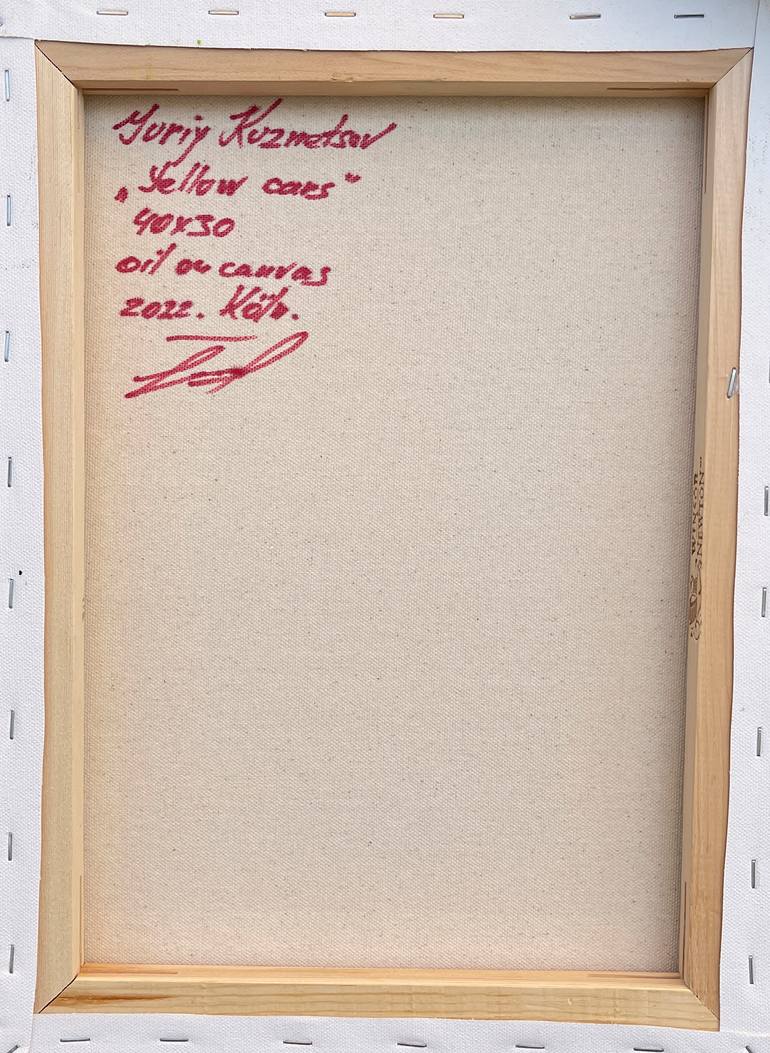 Yuriy Kuznetsov
„Yellow cars“
40x30
oil on canvas
2022. Köln.
WINSOR
& NEWTON